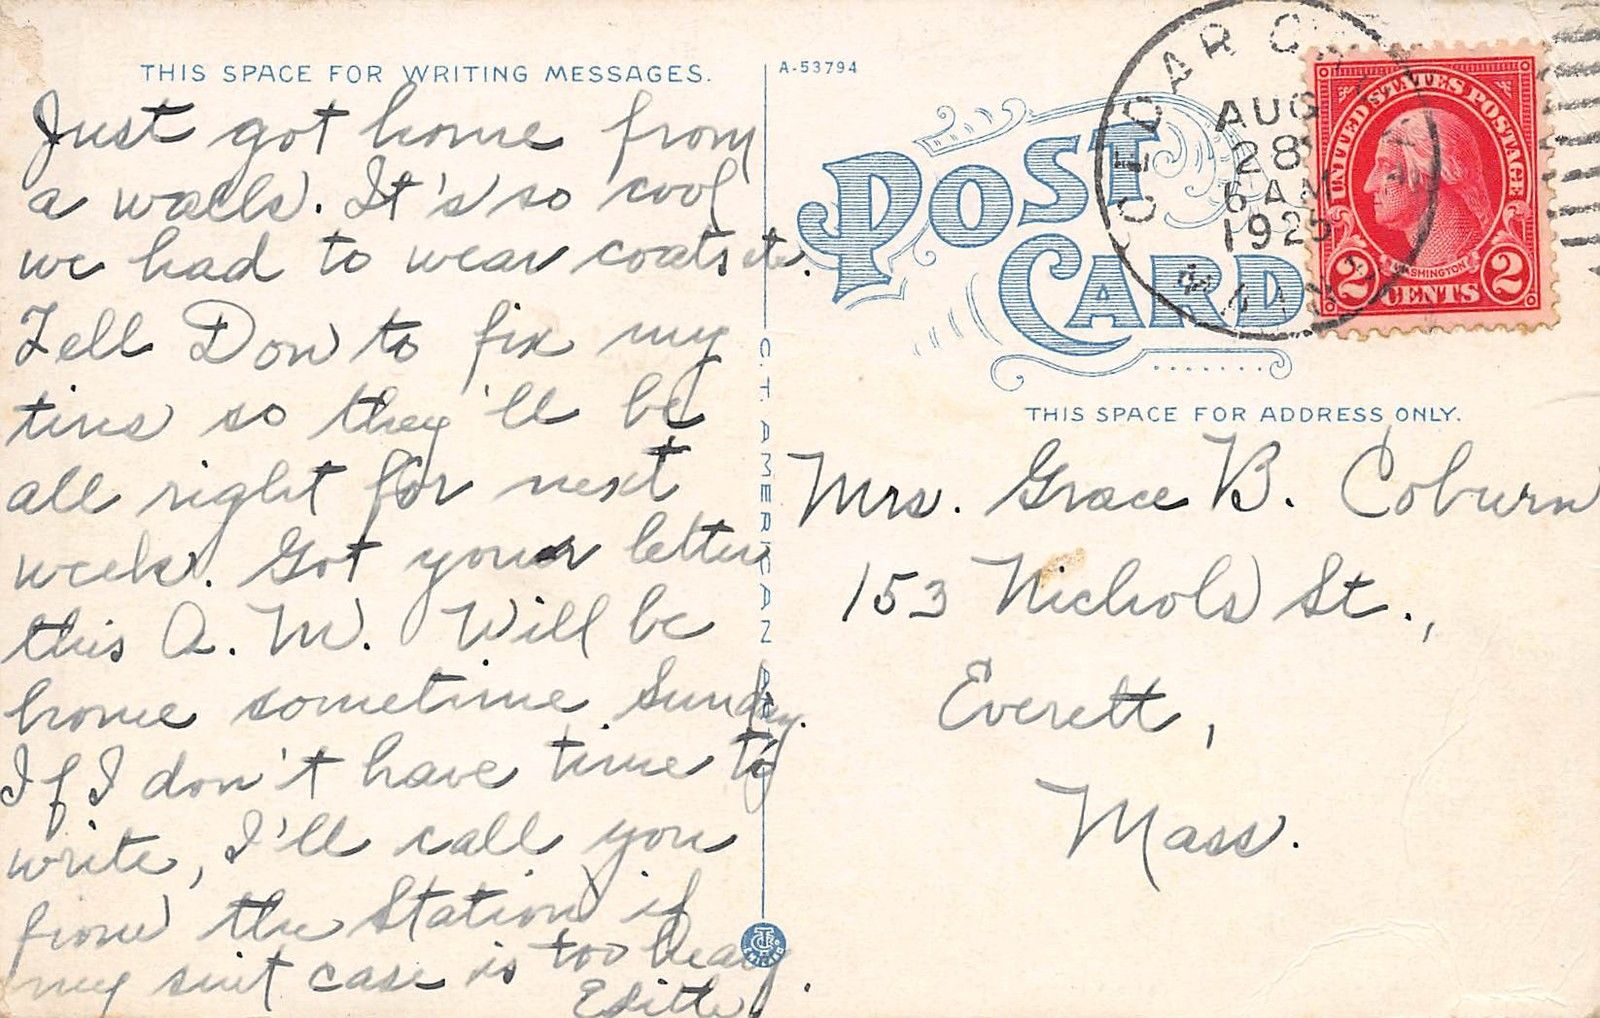 THIS SPACE FOR WRITING MESSAGES.
Just got home from
a walk. It's so cool
we had to wear coats etc.
Tell Don to fix my
tires so they'll be
all right for next
week. Got your letter
this A. M. Will be
home sometime Sunday.
If I don't have time to
write, I'll call you
from the Station if
my suit case is too heavy.
Edith
C. T. AMERICAN ART
A-53794
POST
CARD
CEDAR
AUG
28
6 AM
1925
MAINE
UNITED STATES POSTAGE
WASHINGTON
2 CENTS 2
THIS SPACE FOR ADDRESS ONLY.
Mrs. Grace B. Coburn
153 Nichols St.,
Everett,
Mass.